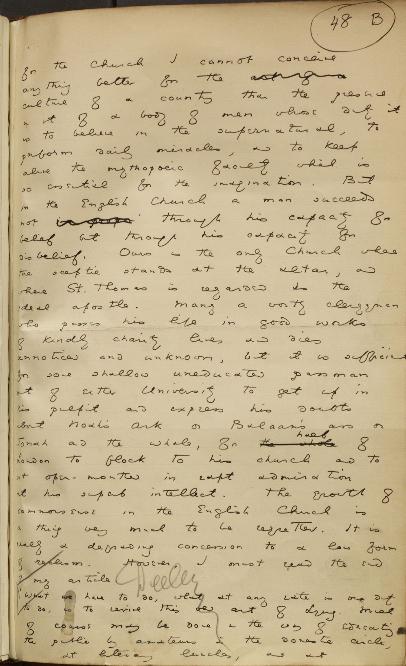 48 B
for the Church I cannot conceive
anything better for the
culture of a country than the presence
in it of a body of men whose duty it
is to believe in the supernatural, to
perform daily miracles, and to keep
alive the mythopoeic faculty which is
so essential for the imagination. But
in the English Church a man succeeds
not through his capacity for
belief but through his capacity for
disbelief. Ours is the only Church where
the sceptic stands at the altar, and
where St. Thomas is regarded as the
ideal apostle. Many a worthy clergyman
who passes his life in good works
of kindly charity lives and dies
unnoticed and unknown, but it is sufficient
for some shallow uneducated passman
out of either University to get up in
his pulpit and express his doubts
about Noah's Ark or Balaam's ass or
Jonah and the whale, for half of
London to flock to his church and to
sit open mouthed in rapt admiration
at his superb intellect. The growth of
commonsense in the English Church is
a thing very much to be regretted. It is
really a degrading concession to a low form
of realism. However I must read the end
of my article
What we have to do, what at any rate is our duty
to do, is to revive this old art of lying. Much
of course may be done in the way of educating
the public by amateurs in the domestic circle,
at literary lunches, and at